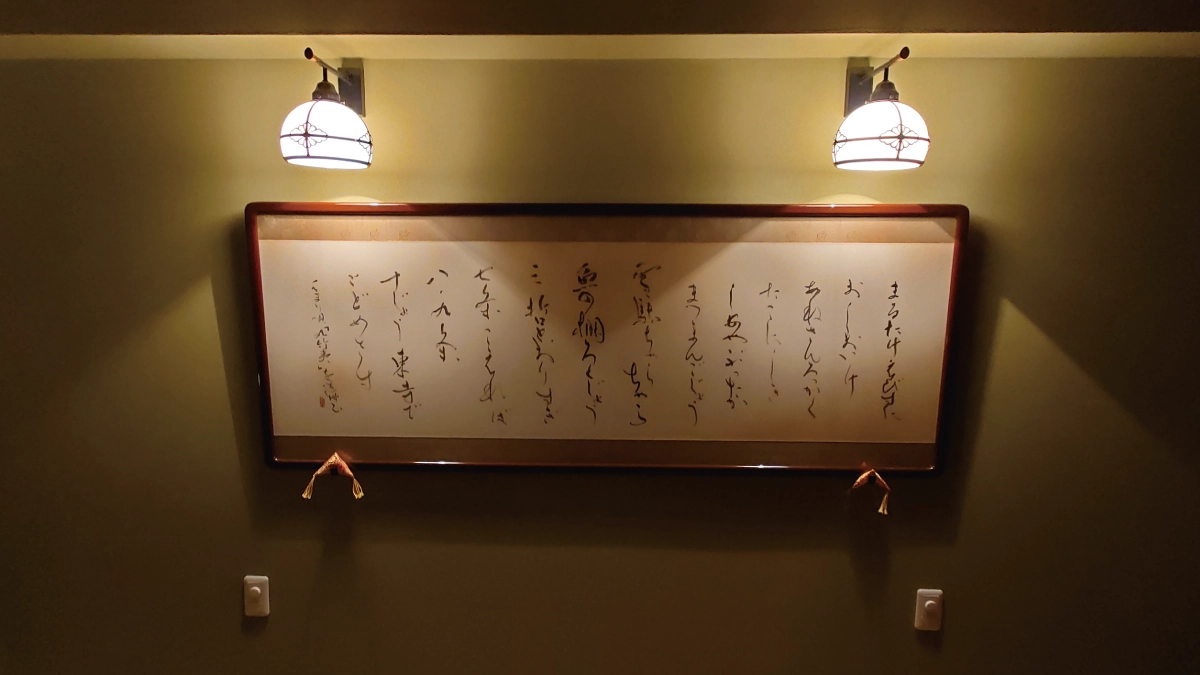 まるたけえびすに
おしおいけ
あねさんろっかく
たこにしき
しあやぶったか
まつまんごじょう
雪駄ちゃらちゃら
魚の棚ろくじょう
三哲とおりすぎ
七条こえれば
八・九条
十じょう東寺で
とどめさす